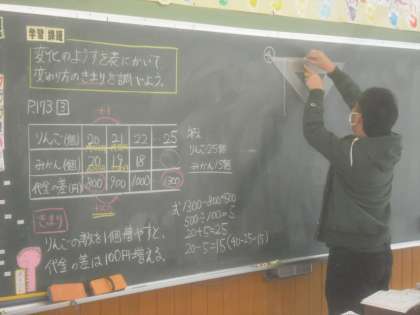 学習課題
変化のようすを表にかいて
変わり方のきまりを調べよう。
P.173 3
+1
りんご(個) 20 21 22 25
みかん(個) 20 19 18
代金の差(円) 800 900 1000 1300
きまり
りんごの数を1個増やすと、
代金の差は100円増える。
りんご25個
みかん15個
式 1300-800=500
500÷100=5
20+5=25
20-5=15(40-25=15)